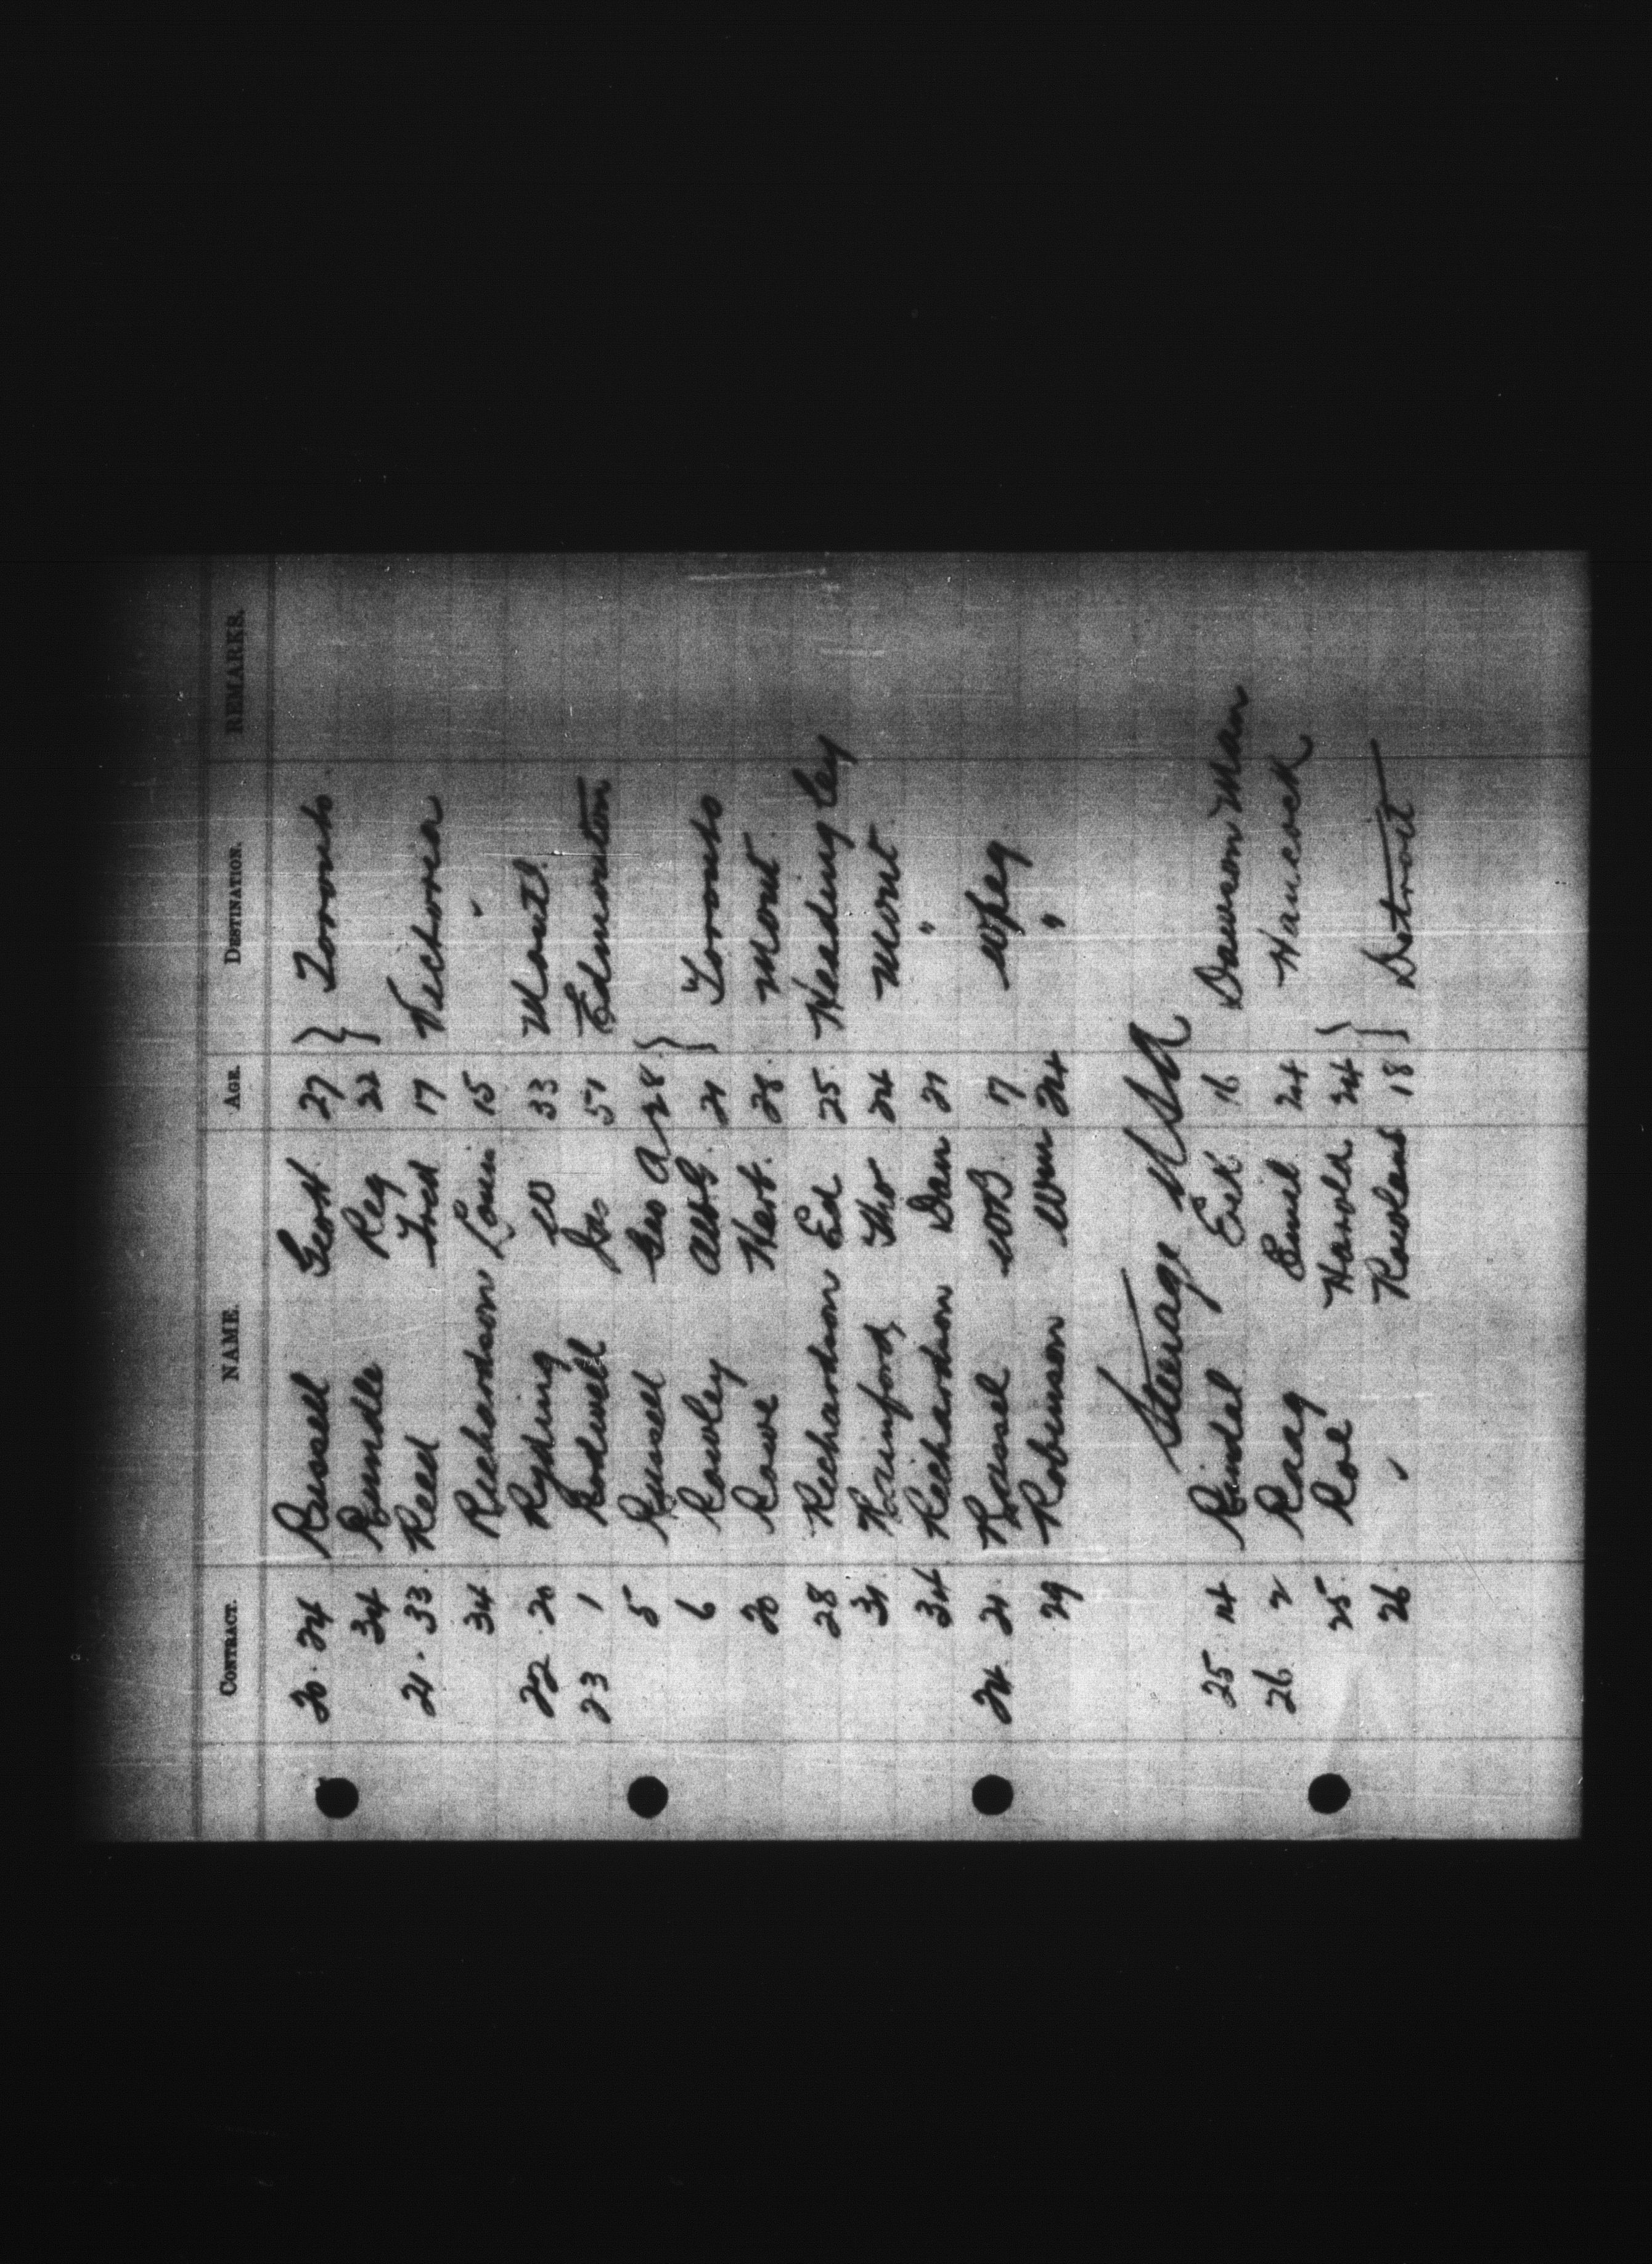 CONTRACT. NAME. AGE. DESTINATION. REMARKS.
20. 24 Russel Scott 27 } Toronto
34 Rundle Reg 22 }
21. 33 Reed Fred 17 Victoria
34 Richardson Louis 15 "
22. 20 Ryding 33 Montl.
23 1 Rodwell Jas 51 Edmonton
5 Russel Geo A 28 }
6 Rowley Alb G 21 } Toronto
20 Rowe Herb. 28. Mont
28 Richardson Ed 25 Headingley
31 Rainford Tho 24 Mont
34 Richardson Dan 21 "
24. 21. Russel WB 17 Wpeg
29 Robinson Wm 24 "
Steerage USA
25 14 Rindal Erik 16 Dawson Man
26 2 Raag Emil 24 Hancock
25 Roe Harold 24 }
26 " Rowland 18 } Detroit